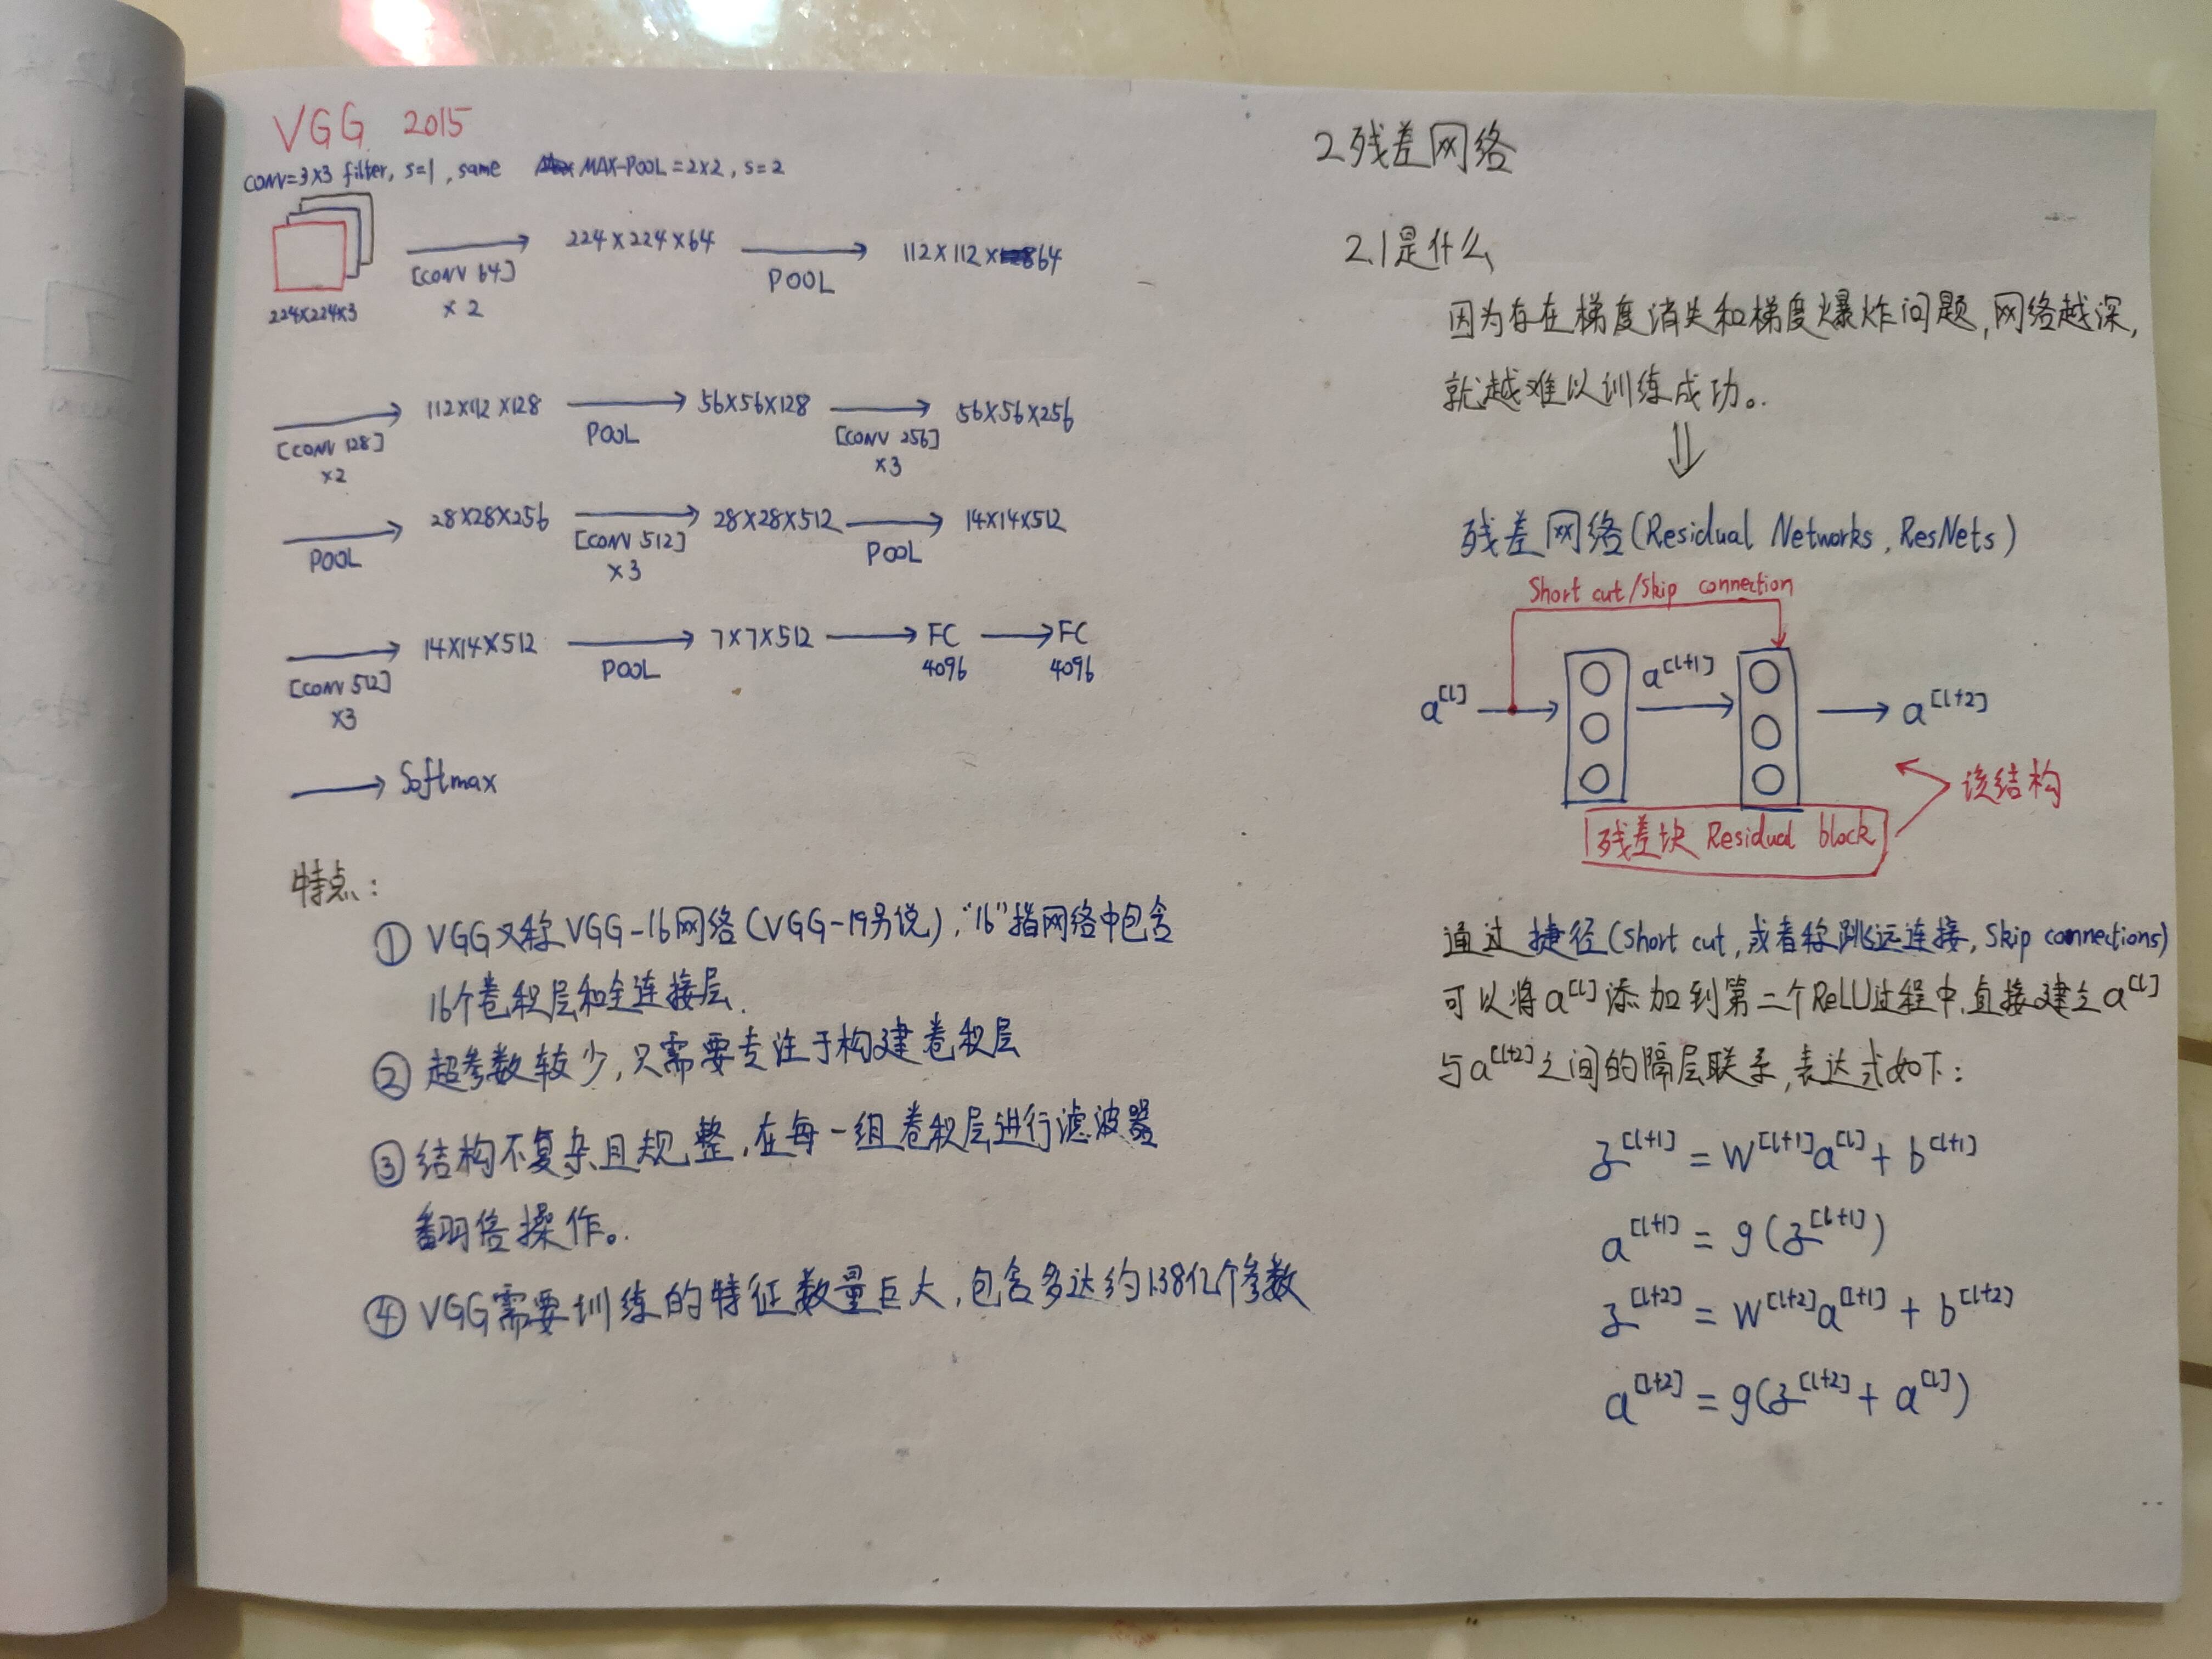 VGG 2015
CONV=3×3 filter, s=1, same MAX-POOL=2×2, s=2
224×224×64 112×112×64
[CONV 64] POOL
224×224×3 ×2
112×112×128 56×56×128 56×56×256
[CONV 128] POOL [CONV 256]
×2 ×3
28×28×256 28×28×512 14×14×512
POOL [CONV 512] POOL
×3
14×14×512 7×7×512 FC FC
[CONV 512] POOL 4096 4096
×3
Softmax
特点:
① VGG又称VGG-16网络(VGG-19另说),"16"指网络中包含
16个卷积层和全连接层.
② 超参数较少,只需要专注于构建卷积层
③ 结构不复杂且规整,在每一组卷积层进行滤波器
翻倍操作。
④ VGG需要训练的特征数量巨大,包含多达约1.38亿个参数
2.残差网络
2.1是什么
因为存在梯度消失和梯度爆炸问题,网络越深,
就越难以训练成功。
⇓
残差网络(Residual Networks, ResNets)
Short cut/Skip connection
a^[l] a^[l+1] a^[l+2]
该结构
残差块 Residual block
通过捷径(Short cut,或者称跳远连接,Skip connections)
可以将a^[l]添加到第二个ReLU过程中,直接建立a^[l]
与a^[l+2]之间的隔层联系,表达式如下:
z^[l+1] = W^[l+1]a^[l] + b^[l+1]
a^[l+1] = g(z^[l+1])
z^[l+2] = W^[l+2]a^[l+1] + b^[l+2]
a^[l+2] = g(z^[l+2] + a^[l])